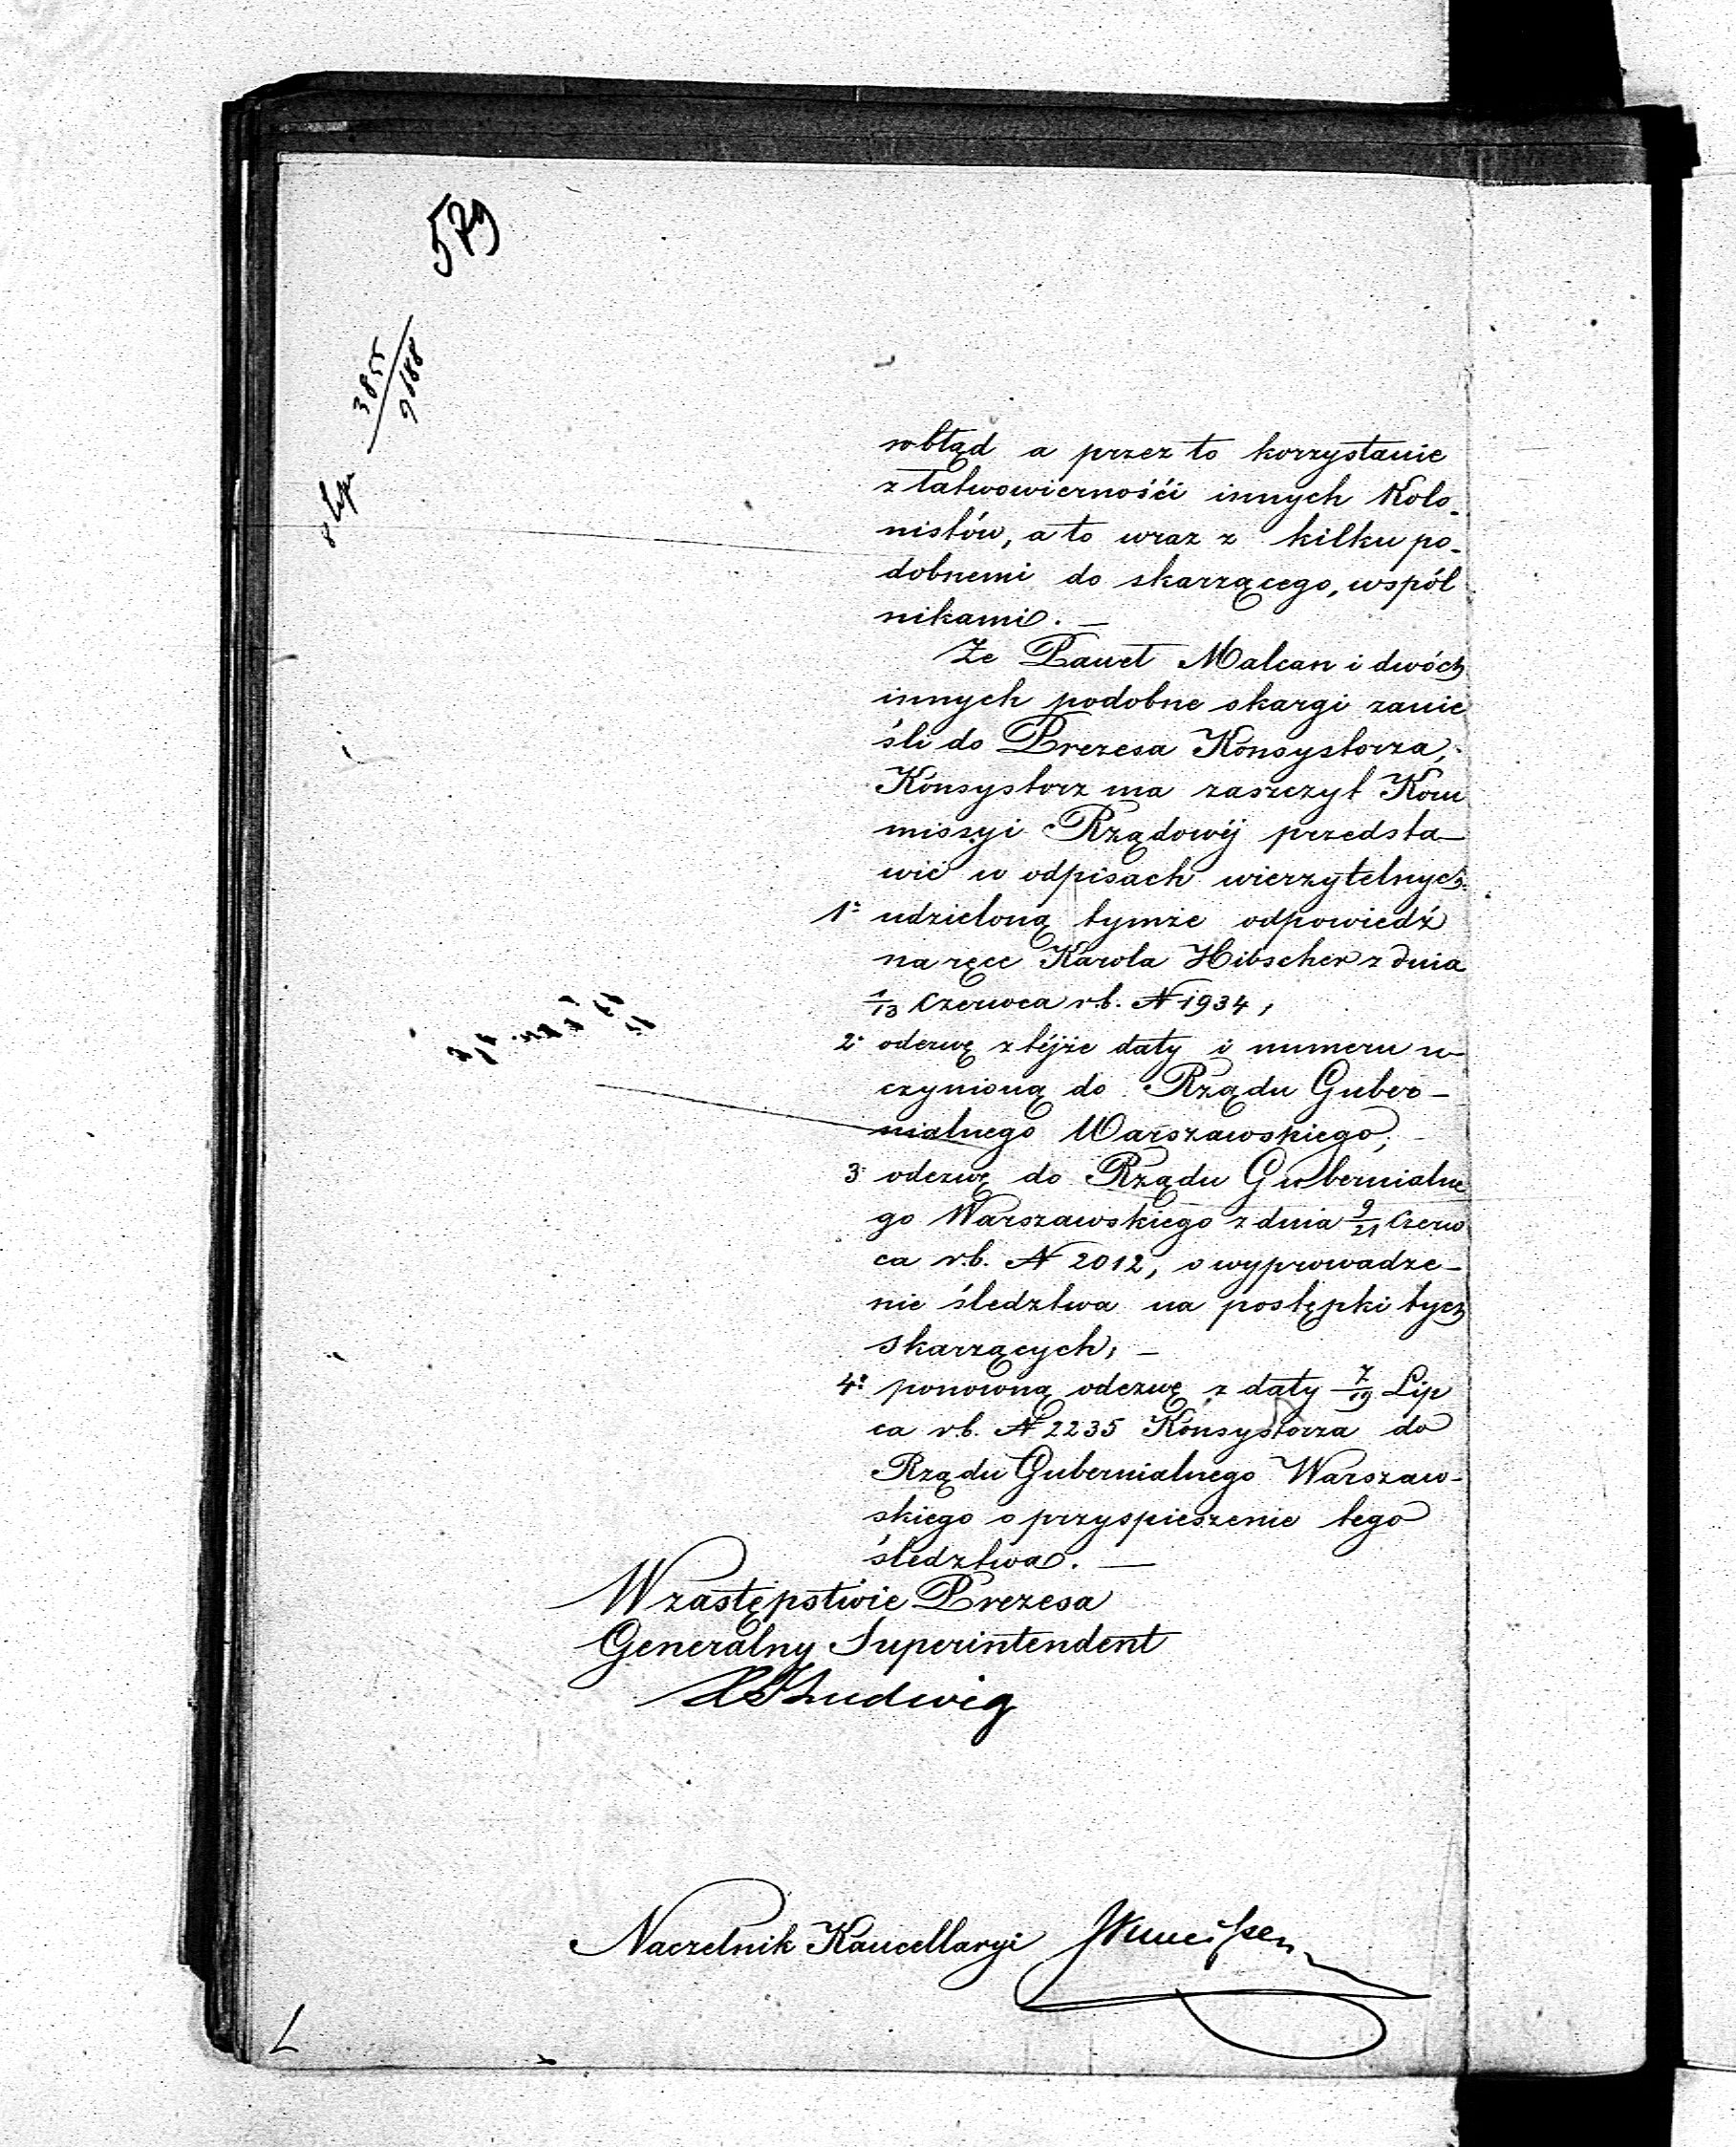 579
3855
9188
w błąd a przez to korzystanie
z łatwowiernośći innych Kolo-
nistów, a to wraz z kilku po-
dobnemi do skarzącego, wspól
nikami. —
Że Paweł Malcan i dwóch
innych podobne skargi zanie
śli do Prezesa Konsystorza,
Konsystorz ma zaszczyt Kom
missyi Rządowéj przedsta-
wić w odpisach wierzytelnych.
1° udzieloną tymże odpowiedź
na ręce Karola Hibscher z dnia
1/13 Czerwca r.b. N 1934,
2° odezwę z téjże daty i numeru u-
czynioną do Rządu Guber-
nialnego Warszawskiego,
3° odezwę do Rządu Gubernialne
go Warszawskiego z dnia 9/21 Czerw
ca r.b. N 2012, o wyprowadze-
nie śledztwa na postępki tych
skarzących, —
4° ponowną odezwę z daty 7/19 Lip
ca r.b. N 2235 Konsystorza do
Rządu Gubernialnego Warszaw-
skiego o przyspieszenie tego
śledztwa. —
W zastępstwie Prezesa
Generalny Superintendent
Ludwig
Naczelnik Kancellaryi